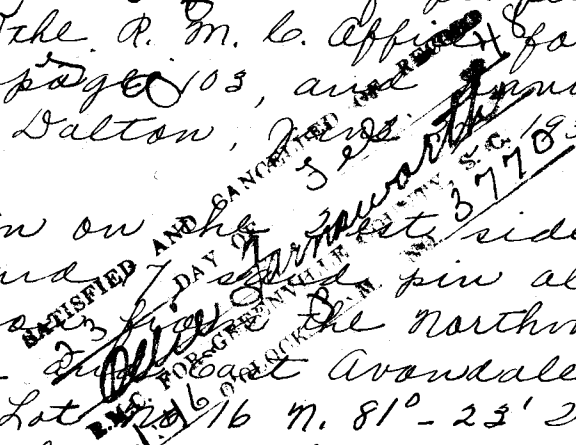 the R. M. C. Office fo
page 103, and
Dalton, June, 193
n on the West side
and 7 said pin al
the Northw
East Avondale
Lot No 16 N. 81° - 23' 2
SATISFIED AND CANCELLED OF RECORD
23 DAY OF Feb. 48
Ollie Farnsworth
R.M.C. FOR GREENVILLE COUNTY, S. C.
O'CLOCK M. NO. 3770